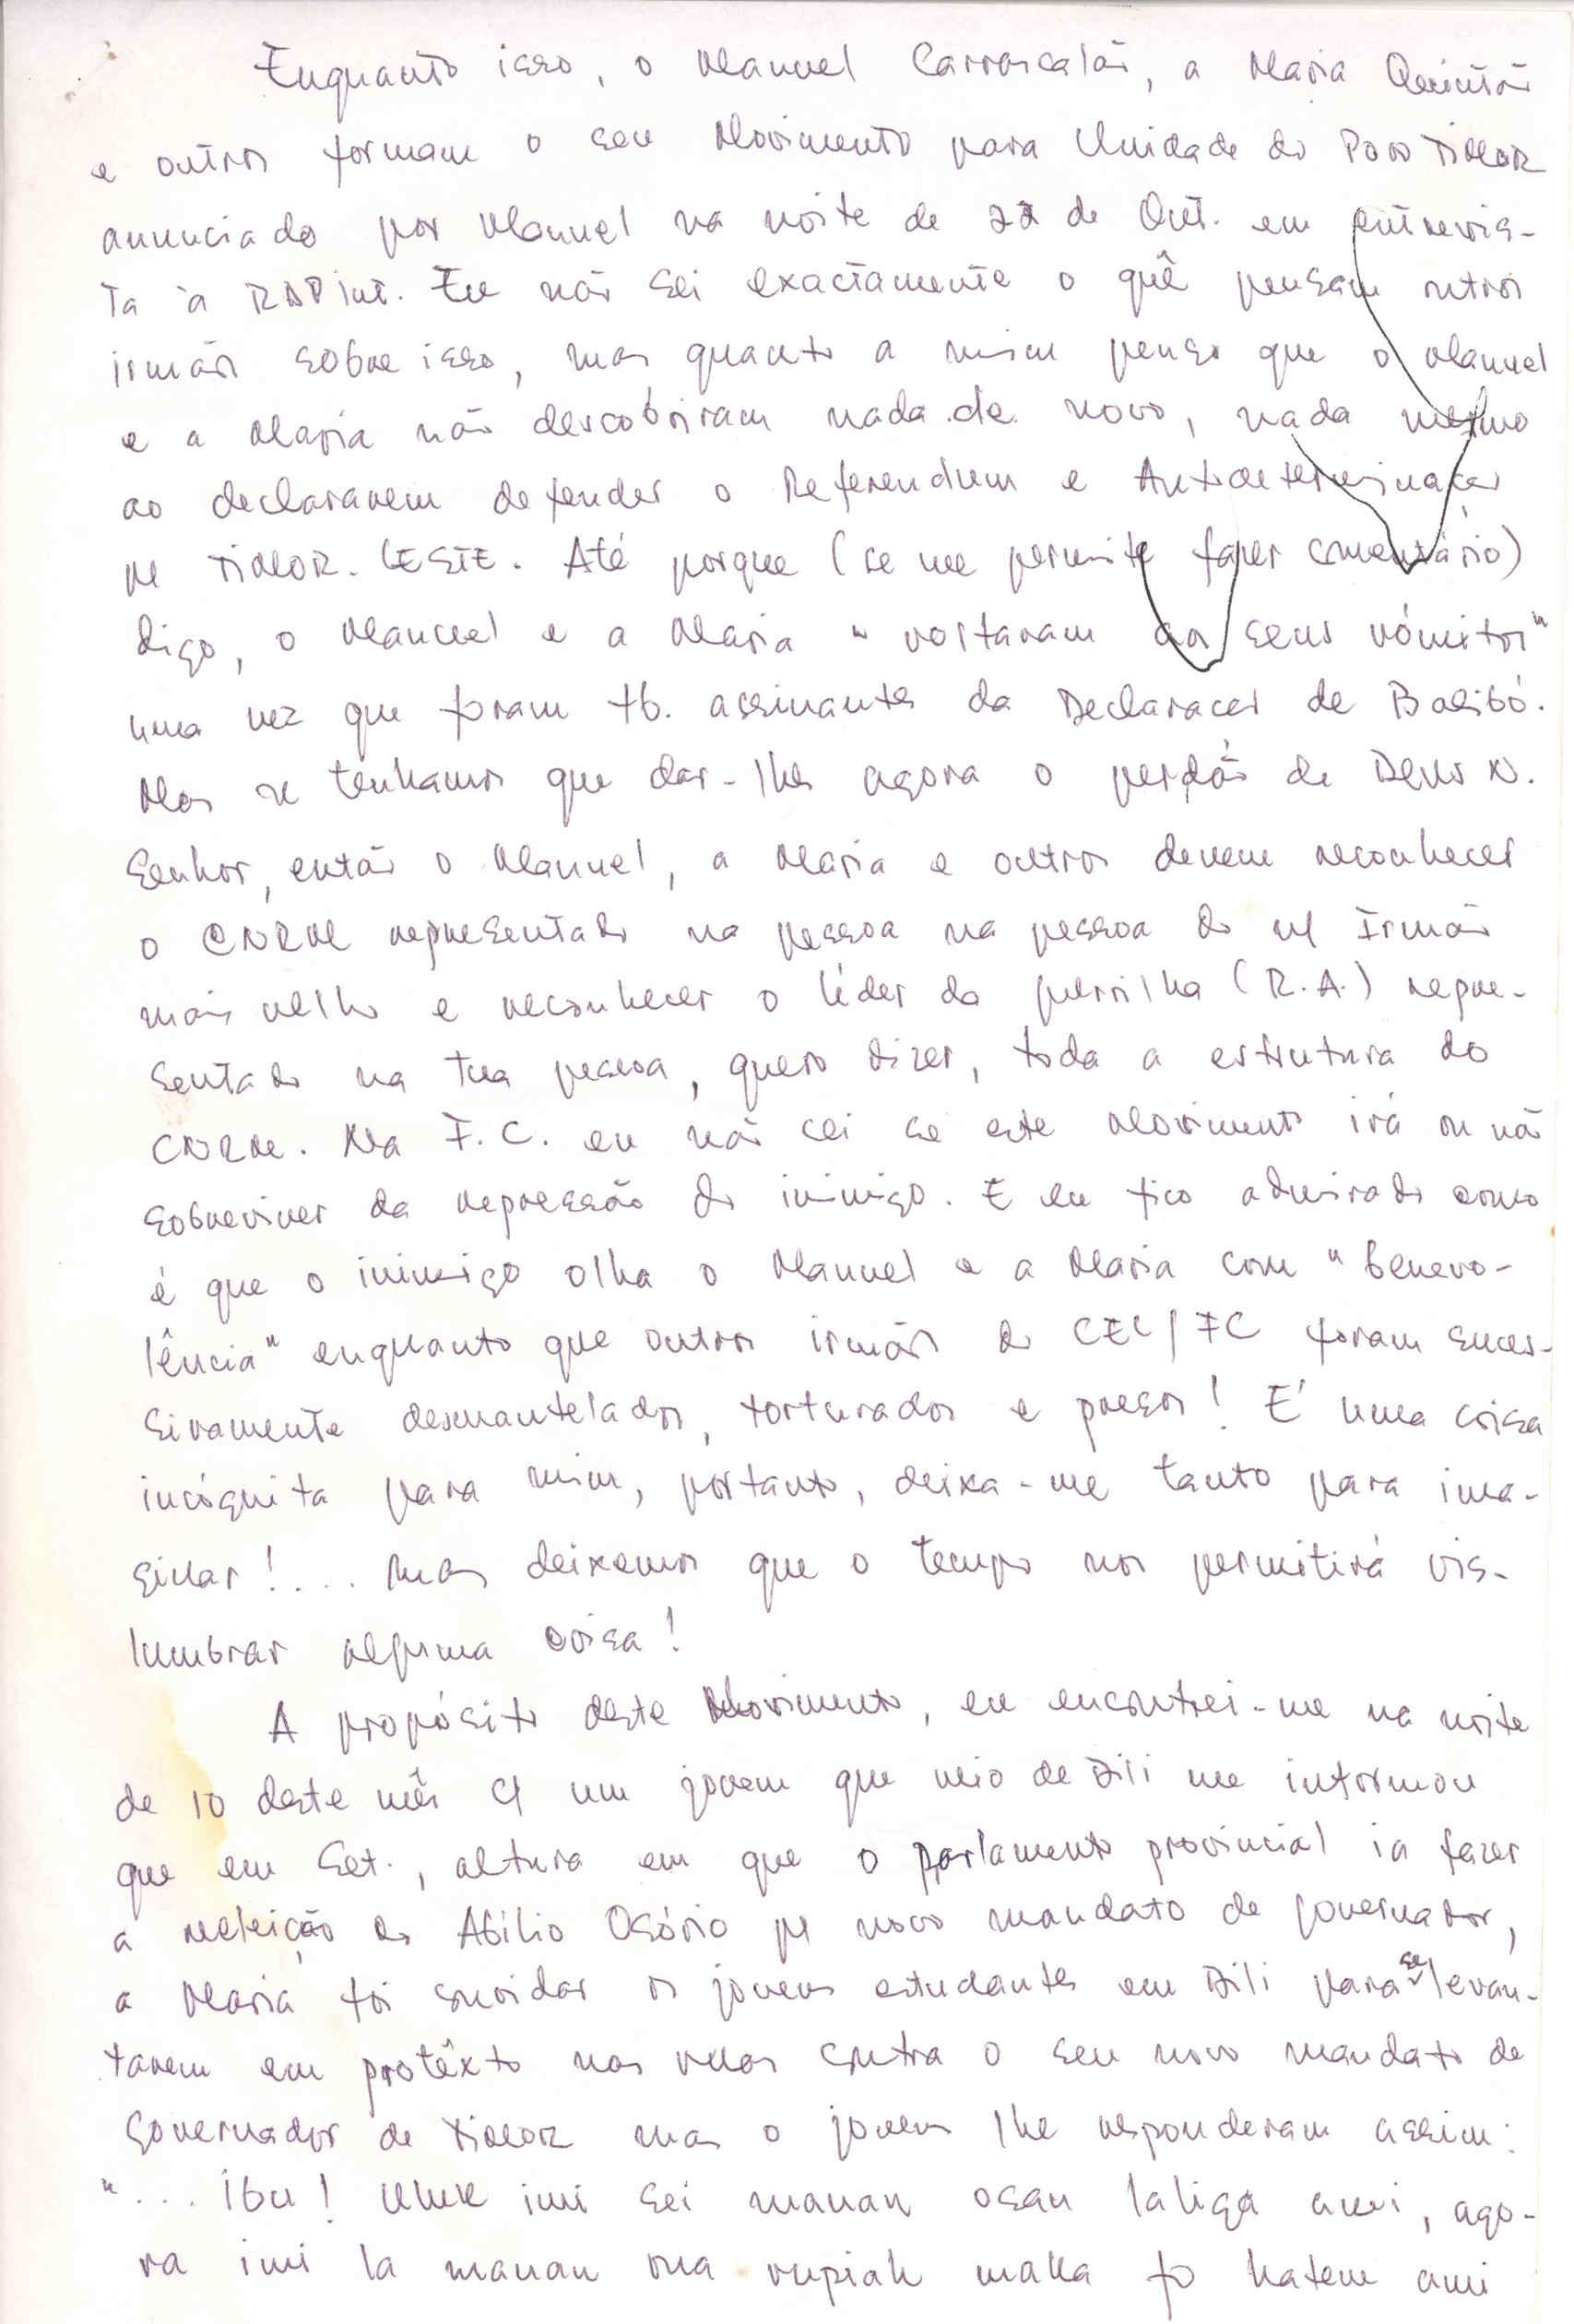 Enquanto isso, o Manuel Carrascalão, a Maria Quintão
e outros formam o seu Movimento para Unidade do Povo TIMOR
anunciado por Manuel na noite de de Out. em entrevis-
ta à RDP Int. Eu não sei exactamente o quê pensam outros
irmãos sobre isso, mas quanto a mim penso que o Manuel
e a Maria não descobriram nada de novo, nada mesmo
ao declararem defender o Referendum e Autodeterminação
p/ TIMOR-LESTE. Até porque (se me permite fazer comentário)
digo, o Manuel e a Maria "voltaram aos seus vómitos"
uma vez que foram tb. assinantes da Declaração de Balibó.
Mas se tenhamos que dar-lhes agora o perdão de Deus N.
Senhor, então o Manuel, a Maria e outros devem reconhecer
o CNRM representado na pessoa na pessoa do n/ Irmão
mais velho e reconhecer o líder da guerrilha (R.A.) repre-
sentado na tua pessoa, quero dizer, toda a estrutura do
CNRM. Na F.C. eu não sei se este Movimento irá ou não
sobreviver da repressão do inimigo. E eu fico admirado como
é que o inimigo olha o Manuel e a Maria com "benevo-
lência" enquanto que outros irmãos do CEL/FC foram suces-
sivamente desmantelados, torturados e presos! É uma coisa
incógnita para mim, portanto, deixa-me tanto para ima-
ginar!.... Mas deixemos que o tempo nos permitirá vis-
lumbrar alguma coisa!
A propósito deste Movimento, eu encontrei-me na noite
de 10 deste mês c/ um jovem que veio de Dili me informou
que em Set., altura em que o parlamento provincial ia fazer
a releição do Abílio Osório p/ novo mandato de governador,
a Maria foi convidar os jovens estudantes em Dili para se levan-
tarem em protêxto nas ruas contra o seu novo mandato de
Governador de Timor mas o jovens lhe responderam assim:
"... Ibu! Uluk imi sei manan osan laliga ami, ago-
ra imi la manan ona rupiah maka fo hatene ami